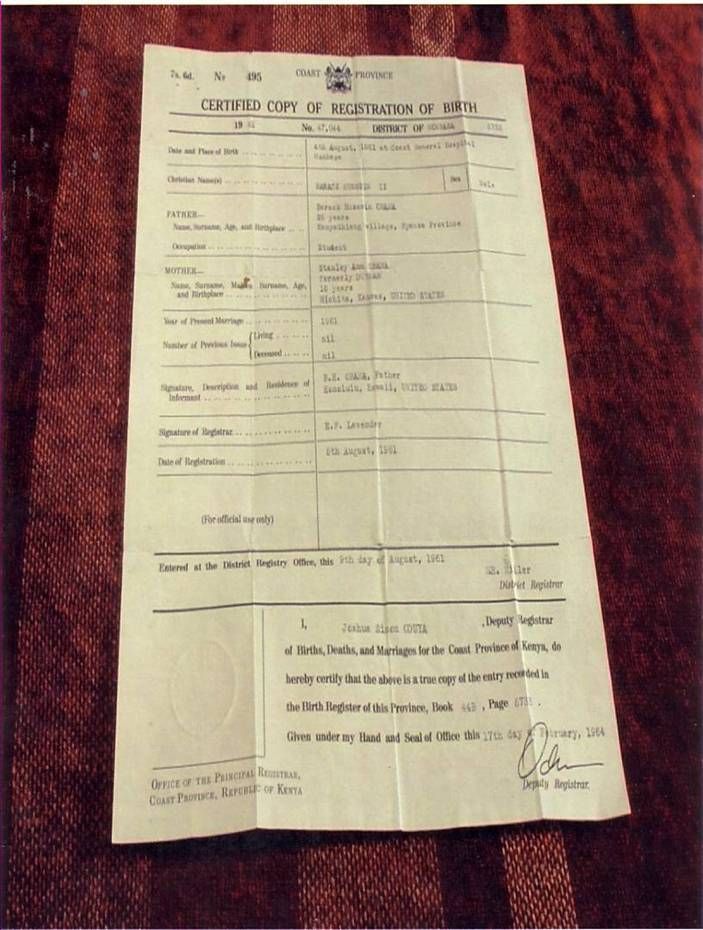 7s. 6d. No 495 COAST PROVINCE
CERTIFIED COPY OF REGISTRATION OF BIRTH
19 61 No. 47,044 DISTRICT OF MOMBASA
Date and Place of Birth 4th August, 1961 at Coast General Hospital
Mombasa
Christian Name(s) BARACK HUSSEIN II Sex Male
FATHER— Barack Hussein OBAMA
Name, Surname, Age, and Birthplace years
village, Nyanza Province
Occupation Student
MOTHER— Stanley Ann OBAMA
formerly DUNHAM
Name, Surname, Maiden Surname, Age, and Birthplace years
Wichita, Kansas, UNITED STATES
Year of Present Marriage 1961
Number of Previous Issue { Living nil
Deceased nil
Signature, Description and Residence of Informant B.H. OBAMA, Father
Honolulu, Hawaii, UNITED STATES
Signature of Registrar E.F. Lavender
Date of Registration 5th August, 1961
(For official use only)
Entered at the District Registry Office, this 9th day of August, 1961
Miller
District Registrar
I, Joshua Simon ODUYA ,Deputy Registrar
of Births, Deaths, and Marriages for the Coast Province of Kenya, do
hereby certify that the above is a true copy of the entry recorded in
the Birth Register of this Province, Book 44B , Page .
Given under my Hand and Seal of Office this 17th day of February, 1964
Deputy Registrar.
OFFICE OF THE PRINCIPAL REGISTRAR,
COAST PROVINCE, REPUBLIC OF KENYA